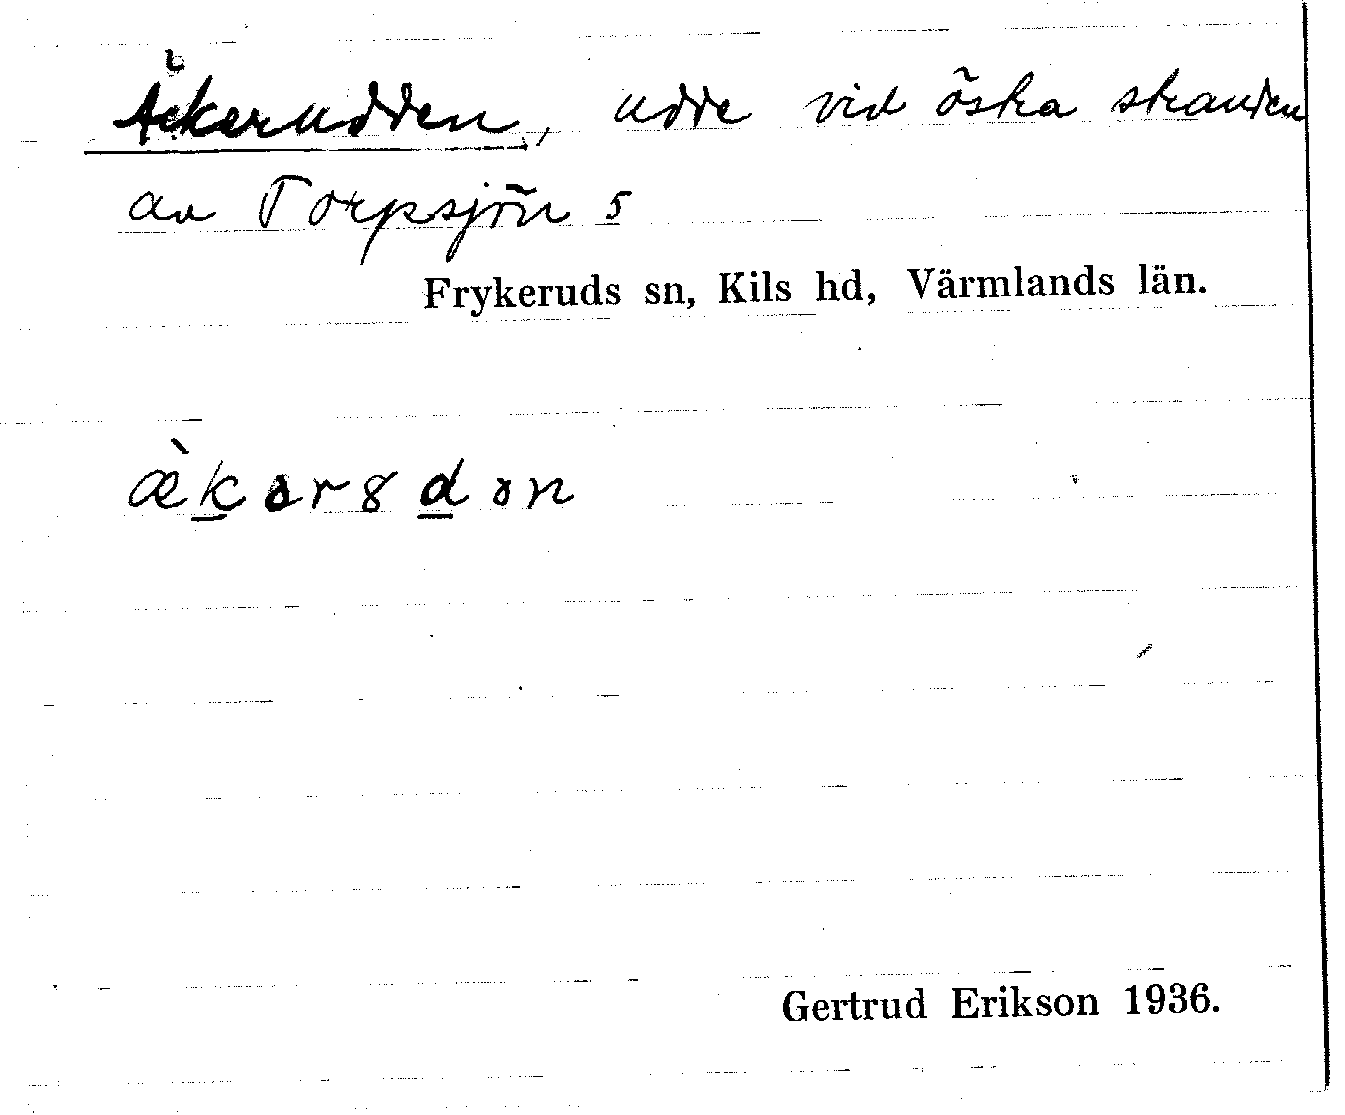 Åkerudden, udde vid östra stranden
av Torpsjön 5
Frykeruds sn, Kils hd, Värmlands län.
æ̀kərȣdən
Gertrud Erikson 1936.